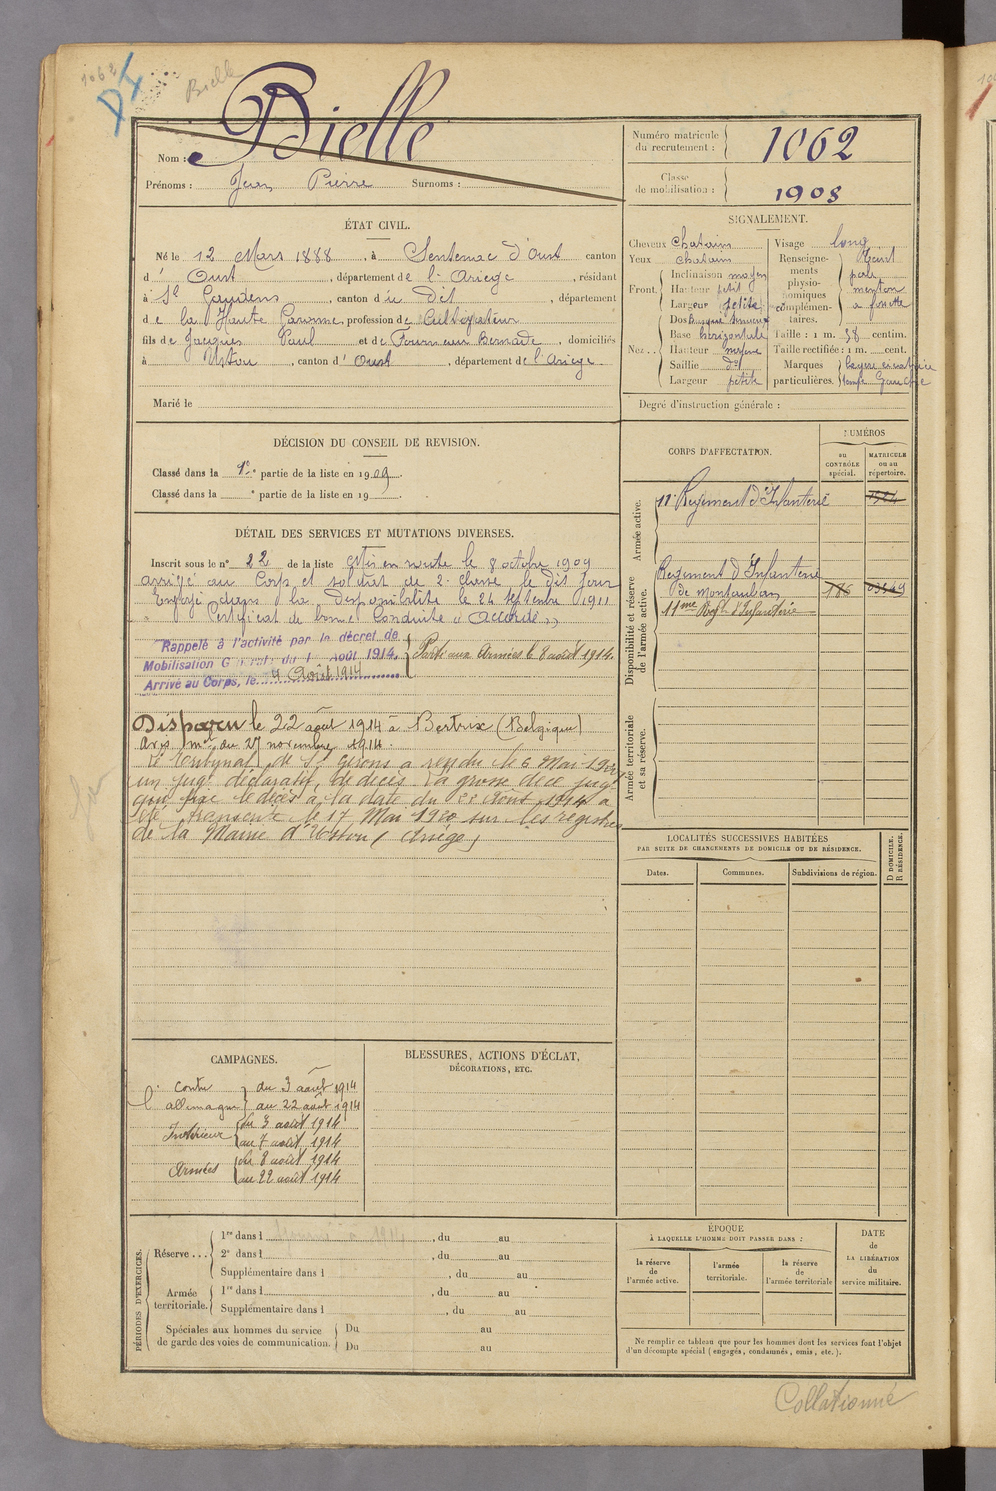 1062
Bielle
Nom : Bielle
Prénoms : Jean Pierre Surnoms :
Numéro matricule du recrutement : 1062
Classe de mobilisation : 1908
ÉTAT CIVIL.
Né le 12 Mars 1888, à Sentenac d'Oust canton
d' Oust, département de l'Ariege, résidant
à St Gaudens, canton d u dit, département
de la Haute Garonne, profession de Cultivateur
fils de Jacques Paul et de Fourneau Bernade, domiciliés
à Ustou, canton d' Oust, département de l'Ariege
Marié le
SIGNALEMENT.
Cheveux chatains
Yeux chatains
Front. Inclinaison moyen
Hauteur petit
Largeur petite
Nez. Dos Busqué sinueux
Base horizontale
Hauteur moyenne
Saillie do
Largeur petite
Visage long
Renseignements physionomiques complémentaires. menton à fossette
Taille : 1 m. 58 centim.
Taille rectifiée : 1 m. cent.
Marques particulières. tempe Gauche
Degré d'instruction générale :
DÉCISION DU CONSEIL DE REVISION.
Classé dans la 1e partie de la liste en 1909.
Classé dans la e partie de la liste en 19
CORPS D'AFFECTATION.
NUMÉROS
au CONTRÔLE spécial.
MATRICULE ou au répertoire.
Armée active.
11 Regiment d'Infanterie
Disponibilité et réserve de l'armée active.
Regiment d'Infanterie
de Montauban 186
11me Regt d'Infanterie
Armée territoriale et sa réserve.
DÉTAIL DES SERVICES ET MUTATIONS DIVERSES.
Inscrit sous le n° 22 de la liste Mis en route le 8 octobre 1909
arrivé au Corps et soldat de 2e classe le dit jour
Envoyé dans la disponibilité le 24 septembre 1911
Certificat de bonne Conduite « Accordé »
Rappelé à l'activité par le décret de
Mobilisation Générale du 1 Août 1914.
Arrivé au Corps, le 4 Août 1914
Parti aux Armées le 8 août 1914.
Disparu le 22 août 1914 à Bertrix (Belgique)
avis mel du 27 novembre 1914.
Le Tribunal de St Girons a rendu le 6 Mai
un jugt déclaratif de décès la grosse dece jugt
qui fixe le décès à la date du 22 Août 1914 a
été transcrite le 17 Mai 1920 sur les registres
de la Mairie d'Ustou (Ariège)
LOCALITÉS SUCCESSIVES HABITÉES
PAR SUITE DE CHANGEMENTS DE DOMICILE OU DE RÉSIDENCE.
Dates.
Communes.
Subdivisions de région.
D DOMICILE.
R RÉSIDENCE.
CAMPAGNES.
contre l'allemagne du 3 août 1914
au 22 août 1914
Intérieur du 3 août 1914
au 7 août 1914
Armées du 8 août 1914
au 22 août 1914
BLESSURES, ACTIONS D'ÉCLAT,
DÉCORATIONS, ETC.
PÉRIODES D'EXERCICES.
Réserve... 1re dans l , du au
2e dans l , du au
Supplémentaire dans l , du au
Armée territoriale. 1re dans l , du au
Supplémentaire dans l , du au
Spéciales aux hommes du service
de garde des voies de communication. Du au
Du au
ÉPOQUE
À LAQUELLE L'HOMME DOIT PASSER DANS :
la réserve de l'armée active.
l'armée territoriale.
la réserve de l'armée territoriale
DATE de LA LIBÉRATION du service militaire.
Ne remplir ce tableau que pour les hommes dont les services font l'objet
d'un décompte spécial (engagés, condamnés, omis, etc.).
Collationné